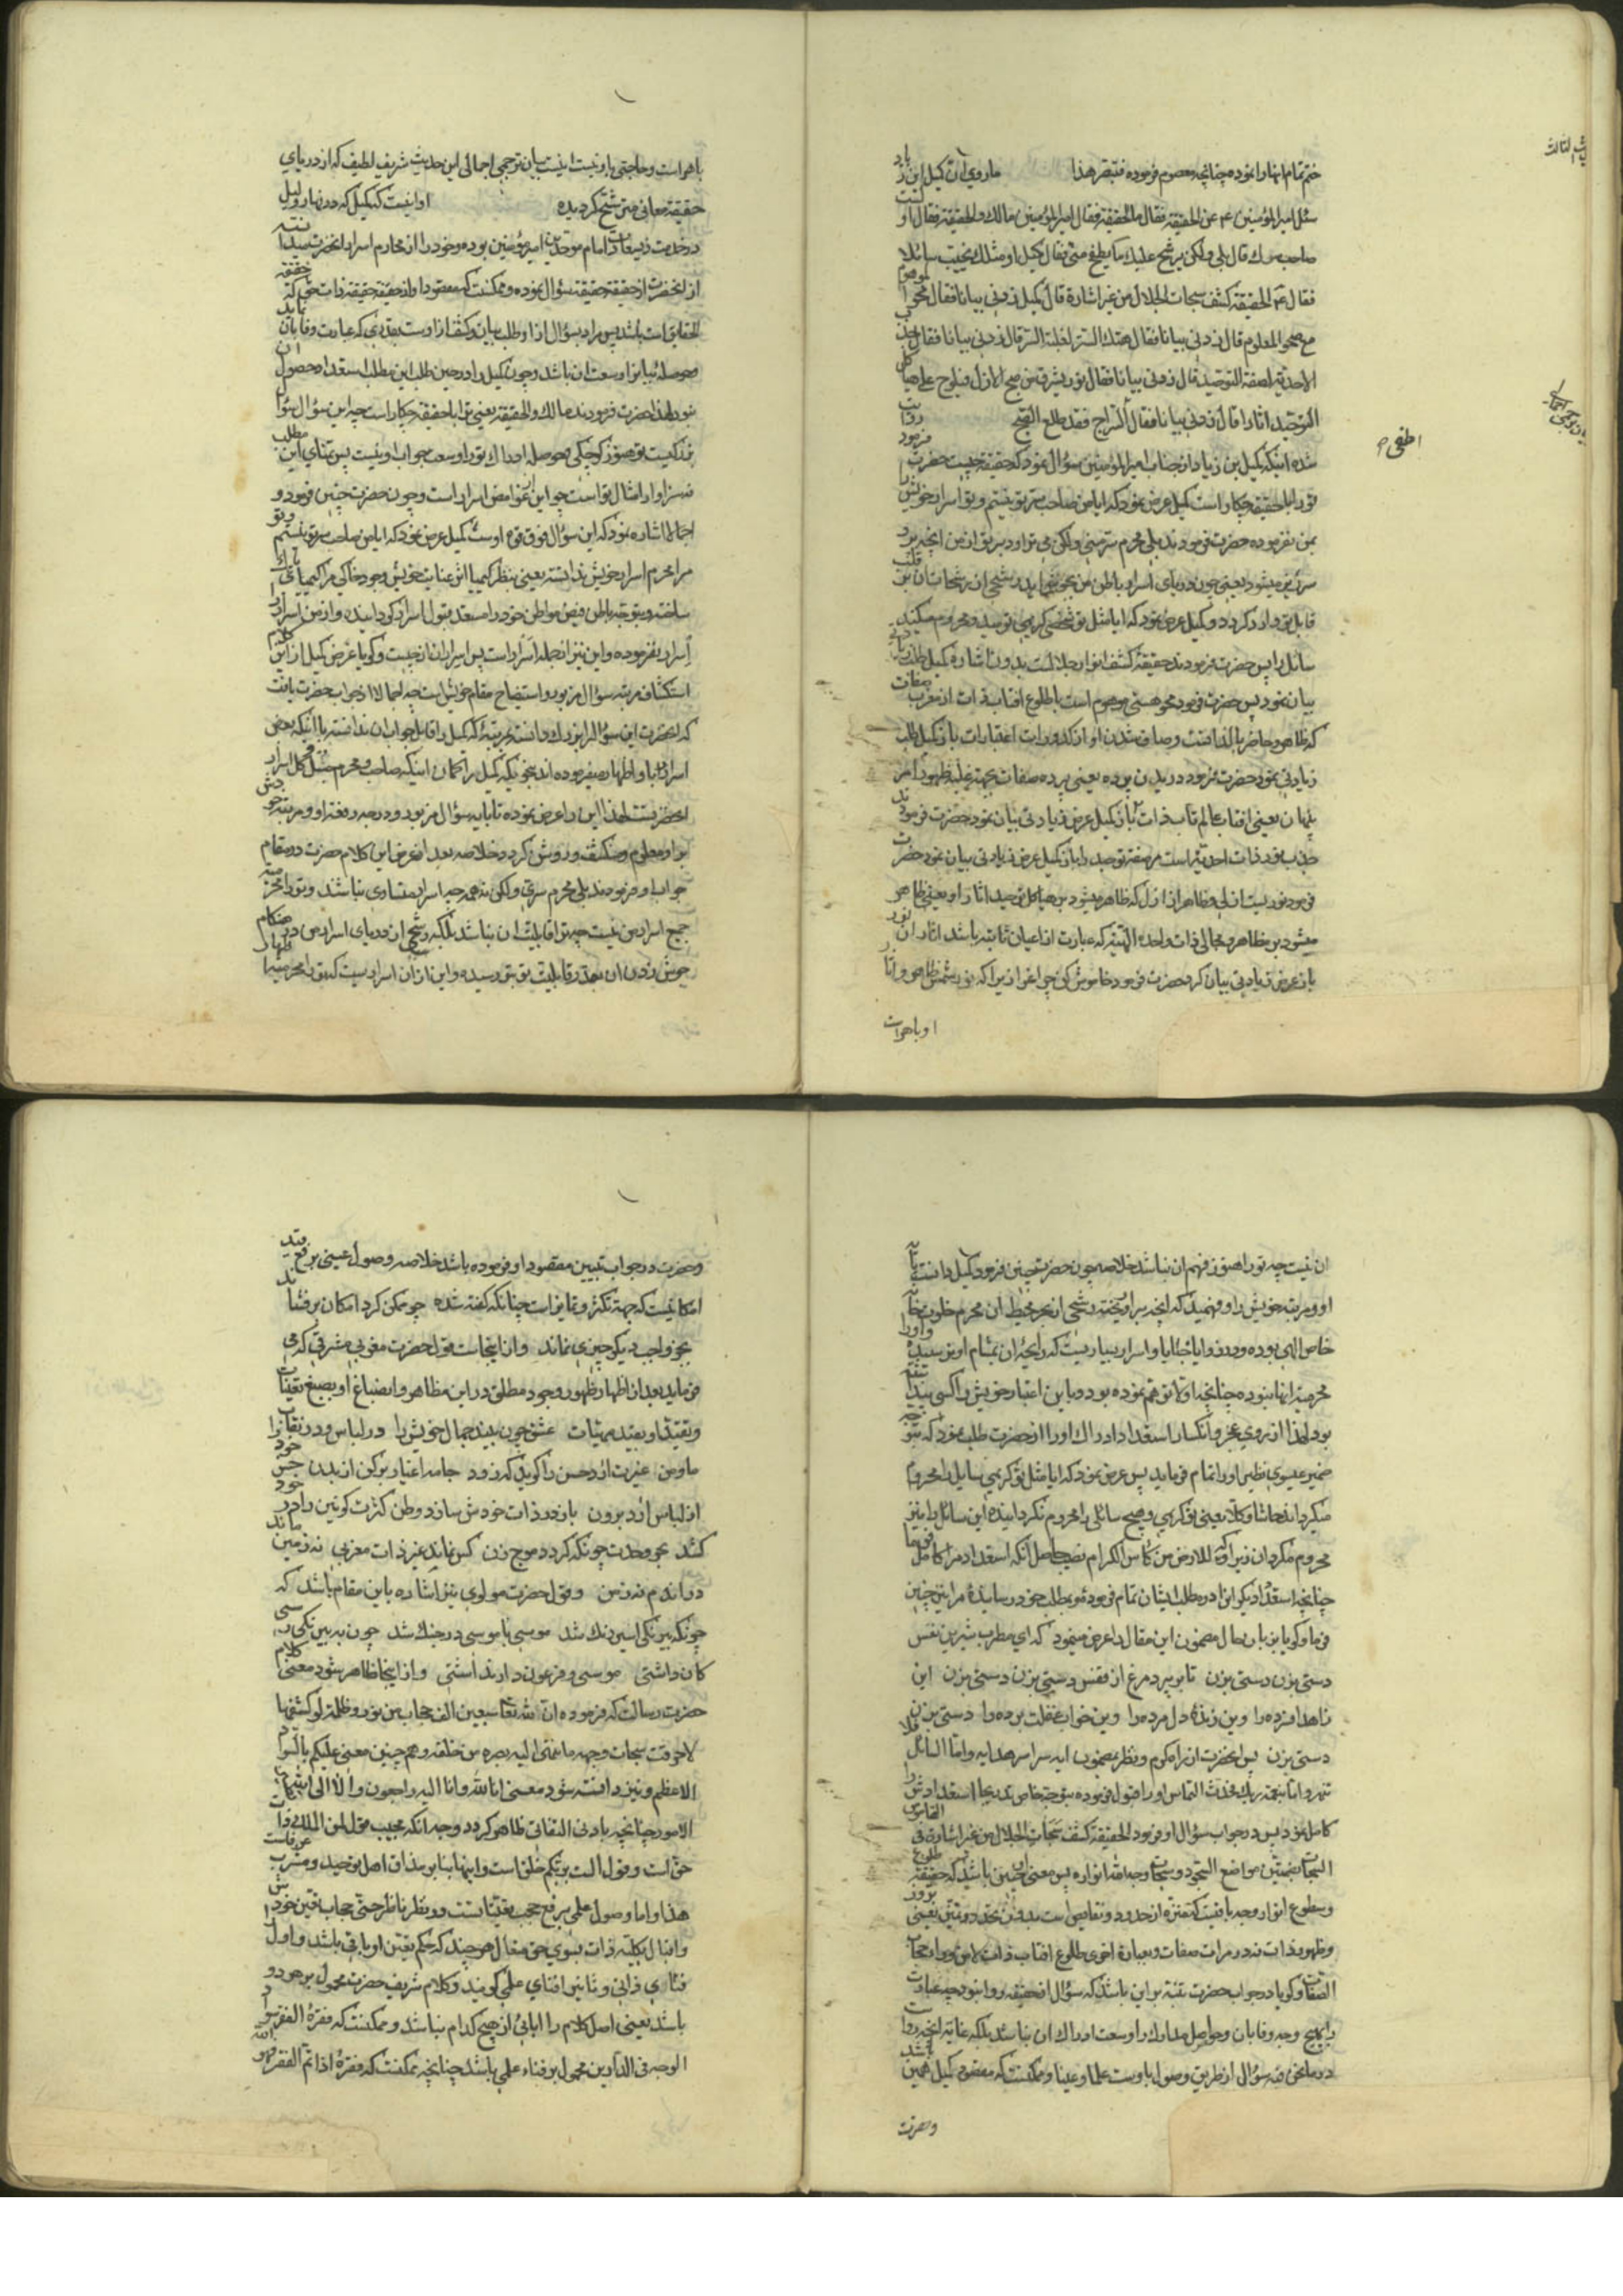 ختم تمام انها را نموده چنانچه معصوم فرموده فتبصر هذا ما روي ان كميل ابن زياد
سئل امير المؤمنين ع عن الحقيقة فقال ما الحقيقة فقال امير المؤمنين مالك والحقيقة فقال او لست
صاحب سرك قال بلى ولكن يرشح عليك ما يطفح منى فقال كميل او مثلك يخيب سائلا
فقال ع الحقيقة كشف سبحات الجلال من غير اشارة قال كميل زدنى بيانا فقال محو الموهوم
مع صحو المعلوم قال زدنى بيانا فقال هتك الستر لغلبة السر قال زدنى بيانا فقال جذب
الاحدية لصفة التوحيد قال زدنى بيانا فقال نور يشرق من صبح الازل فيلوح على هياكل
التوحيد اثاره قال زدنى بيانا فقال السراج فقد طلع الصبح
اطفى
شده اينكه كميل بن زياد از جناب امير المؤمنين سؤال نمود كه حقيقة چيست حضرت فرمود
تو را با حقيقة چكار است كميل عرض نمود كه ايا من صاحب سر تو نيستم و تو اسرار خويش را
بمن نفرموده حضرت فرمودند بلى محرم سر منى ولكن مى تراود بر تو از من انچه
قابل تو دارد كردد و كميل عرض نمود كه ايا مثل تو شخص كريمى نوميد و محروم ميكند
سائل را پس حضرت فرمودند حقيقة كشف انوار جلالست بدون اشارة كميل طلب زيادتى
بيان نمود پس حضرت فرمود محو هستى موهوم است با طلوع افتاب ذات از مغرب صفات
كه ظاهر و حاضر بالذاتست و صاف شدن او از كدورات اعتبارات باز كميل طلب
زيادتى نمود حضرت فرمود دريدن پرده يعنى پرده صفات بجهة غلبه ظهور امر
پنهان يعنى افتاب عالم تاب ذات باز كميل عرض زيادتى بيان نمود حضرت فرمودند
جذب نور ذات احدية است مر صفة توحيد را باز كميل عرض زيادتى بيان نمود حضرت
فرمود نوريست ازلى و ظاهر از ازل كه ظاهر ميشود بر هياكل توحيد اثار او يعنى ظاهر
ميشود بر مظاهر و مجالى ذات واحده الهية كه عبارت از اعيان ثابته باشد اثار ان نور
باز عرض زيادتى بيان كرد حضرت فرمود خاموش كن چراغ را زيرا كه نور شمس ظاهر و اثار
او باهراست
باهراست و حاجتى باو نيست اينست بيان ترجمى اجمالى اين حديث شريف لطيف كه از درياى
حقيقة معانى متر شح كرديده اوانيست كه كميل كه در نهار و ليل
در خدمت امام موحدين امير مؤمنين بوده و خود را از محارم اسرار انحضرت ميدانسته
از انحضرت از حقيقة حقيقة سؤال نموده و ممكنست كه مقصود او از حقيقة حقيقة ذات حق كه حقيقة
الحقايق است باشد پس مراد بسؤال از او طلب بيان و كشف از اوست بقدرى كه عبارت وفا بان نمايد
و حوصله بيان او سعت ان باشد و چون كميل را در حين طلب اين مطلب استعداد حصول ان
نبود لهذا حضرت فرمودند مالك والحقيقة يعنى ترا با حقيقة چكار است چه اين سؤال سؤال
بزركيست و تو هنوز كوچكى و حوصله ادراك تو را وسعت جواب او نيست پس تمناى اين مطلب
نه سزاوار امثال تو است چو اين غوامض اسرار است و چون حضرت چنين فرمود و
اجمالا اشاره نمود كه اين سؤال فوق قوه اوست كميل عرض نمود كه ايا من صاحب سر تو نيستم و تو
مرا محرم اسرار خويش ندانسته يعنى بنظر كيميا اثر عنايت خويش وجود خاكى مرا كيمياى
ساخته و بتوجه باطن فيض مواطن خود را مستعد قبول اسرار كردانيده و از من اسرار
اسرار نفرموده و اين نيز از جمله اسرار است پس اسرار از چيست و كويا غرض كميل از اين كلام
استكشاف مرتبه سؤال مزبور و استيضاح مقام خويش است چه اجمالا از جواب حضرت يافت
كه انحضرت اين سؤال را بزرك دانسته كه كميل را قابل جواب ان ندانسته با انكه بعضى
اسرار را باو اظهار ميفرموده اند بنحويكه كميل را كمان اينكه صاحب و محرم كل اسرار
انحضرتست لهذا اين را عرض نموده تا پايه سؤال مزبور و درجه رفعة او و مرتبه خودش
بر او معلوم و منكشف و روشن كردد خلاصه بعد از عرض اين كلام حضرت در مقام
جواب او فرمودند بلى محرم سرى ولكن نه همه چه اسرار متساوى نباشند و تو را محرميت
جميع اسرار من نيست چه ترا قابليت ان نباشد بلكه رشحى از درياى اسرار من در هنكام
جوش زدن ان بقدر قابليت تو بتو رسيده و اين از ان اسراريست كه تو را محرميت اظهار
ان نيست چه تو را هنوز فهم ان نباشد خلاصه چون حضرت چنين فرمود كميل دانست پايه
او و مرتبه خويش را و فهميد كه انچه بر او ريخته رشحى از بحر محيط ان محرم خلوت خانه
خاص الهى بوده و در زوايا خبايا و اسرار بسياريست كه رايحه ان بمشام او نرسيده و او را
محرميت انها نبوده چنانچه اولا توهم نموده بود و باين اعتبار خويش را كسى پنداشته
بود لهذا از روى عجز و انكسار استعداد ادراك او را از حضرت طلب نمود كه بتوجه
ضمير عيسوى نظير او را تمام فرمايد پس عرض نمود كه ايا مثل تو كريمى سايل را محروم
ميكرداند حاشا و كلا يعنى تو كريمى و هيچ سائلى را محروم نكردانيده اين سائل را نيز
محروم مكردان زيرا كه للارض من كأس الكرام نصيب حاصل انكه استعداد مرا كامل فرما
چنانچه استعداد ديكران را در مطلب ايشان تمام فرموده و بمطلب خود رسانيدى مرا نيز چنين
فرما و كويا بزبان حال مضمون اين مقال را عرض مينمود كه اى مطرب شيرين نفس
دستى بزن دستى بزن تا بر پرد مرغ از قفس دستى بزن دستى بزن اين
زاهد افسرده را وين زنده دل مرده را وين خواب غفلت برده را دستى بزن
دستى بزن پس انحضرت از راه كرم و نظر بمضمون ايه سراسر هدايه واما السائل فلا
تنهر واما بنعمة ربك فحدث التماس او را قبول فرموده بتوجه خاص بتدريج استعدادش را
كامل نمود پس در جواب سؤال او فرمود الحقيقة كشف سبحات الجلال من غير اشارة فى القاموس
السبحات بضمتين مواضع السجود و سبحات وجه الله انواره پس معنى چنين باشد كه حقيقة طلوع
و سطوع انوار وجه باقيست كه منزه از حدود و نقايص است بدون تحدد و تعين يعنى بروز
و ظهور ذات نه در مرات صفات و بعبارة اخرى طلوع افتاب ذات لا من وراء حجاب
الصفات و كويا در جواب حضرت تنبيه بر اين باشد كه سؤال از حقيقة روا نبود چه عبارت
را بهيچ وجه وفا بان و حواصل مدارك را وسعت ادراك ان نباشد بلكه غاية انچه رواست
در ما نحن فيه سؤال از طريق وصول باوست علما و عينا و ممكنست كه مقصود كميل همين باشد
و حضرت
و حضرت در جواب تبيين مقصود او فرموده باشد خلاصه وصول عينى برفع قيد
امكانيست كه جهة تكثر و تمايز است چنانكه كفته شده چو ممكن كرد امكان بر فشاند
بجز واجب ديكر چيزى نماند و از اينجاست قول حضرت مغربى مشرقى كه مى
فرمايد بعد از اظهار ظهور وجود مطلق در اين مظاهر و انصباغ او بصبغ تعينات
و تقيد او بقيد مهيات عشق چون بيند جمال خويش را در لباس و در نقاب
ما و من غيرت ار در حسن را كويد كه زود جامه اغيار بركن از بدن
از لباس ارد برون باز در ذات خودش سازد وطن كثرت كونين را در خود
كشد بحر وحدت چونكه كردد موج زن كس نماند غير ذات مغربى نه زمين ماند
در اندم نه زمن و قول حضرت مولوى نيز اشاره باين مقام باشد كه
چونكه بيرنكى اسير رنك شد موسى با موسى در جنك شد چون به بيرنكى رسى
كان داشتى موسى و فرعون دارند اشتى و از اينجا ظاهر شود معنى كلام
حضرت رسالت كه فرموده ان لله تعالى سبعين الف حجاب من نور و ظلمة لو كشفها
لاحرقت سبحات وجهه ما انتهى اليه بصره من خلقه و هم چنين معنى عليكم بالسواد
الاعظم و نيز دانسته شود معنى انا لله وانا اليه راجعون و الا الى الله
الامور چنانچه بادنى التفاتى ظاهر كردد وجه انكه مجيب قول لمن الملك ذات
حق است و قول الست بربكم خلق است و اينها بنا بر مذاق اهل توحيد و مشرب عرفاست
هذا و اما وصول علمى برفع حجب تعيناتست در نظر ناظر حتى حجاب تعين خودش
و اقبال بكليه ذات بسوى حق متعال هر چند كه حكم تعين او باقى باشد و اول را
فناى ذاتى و ثانى را فناى علمى كويند و كلام شريف حضرت محمول بر هر دو
باشد يعنى اصل كلام را ابائى از هيچ كدام نباشد و ممكنست كه فقرة الفقر سواد
الوجه فى الدارين محمول بر فناء علمى باشد چنانچه ممكنست كه فقرة اذا تم الفقر فهو الله